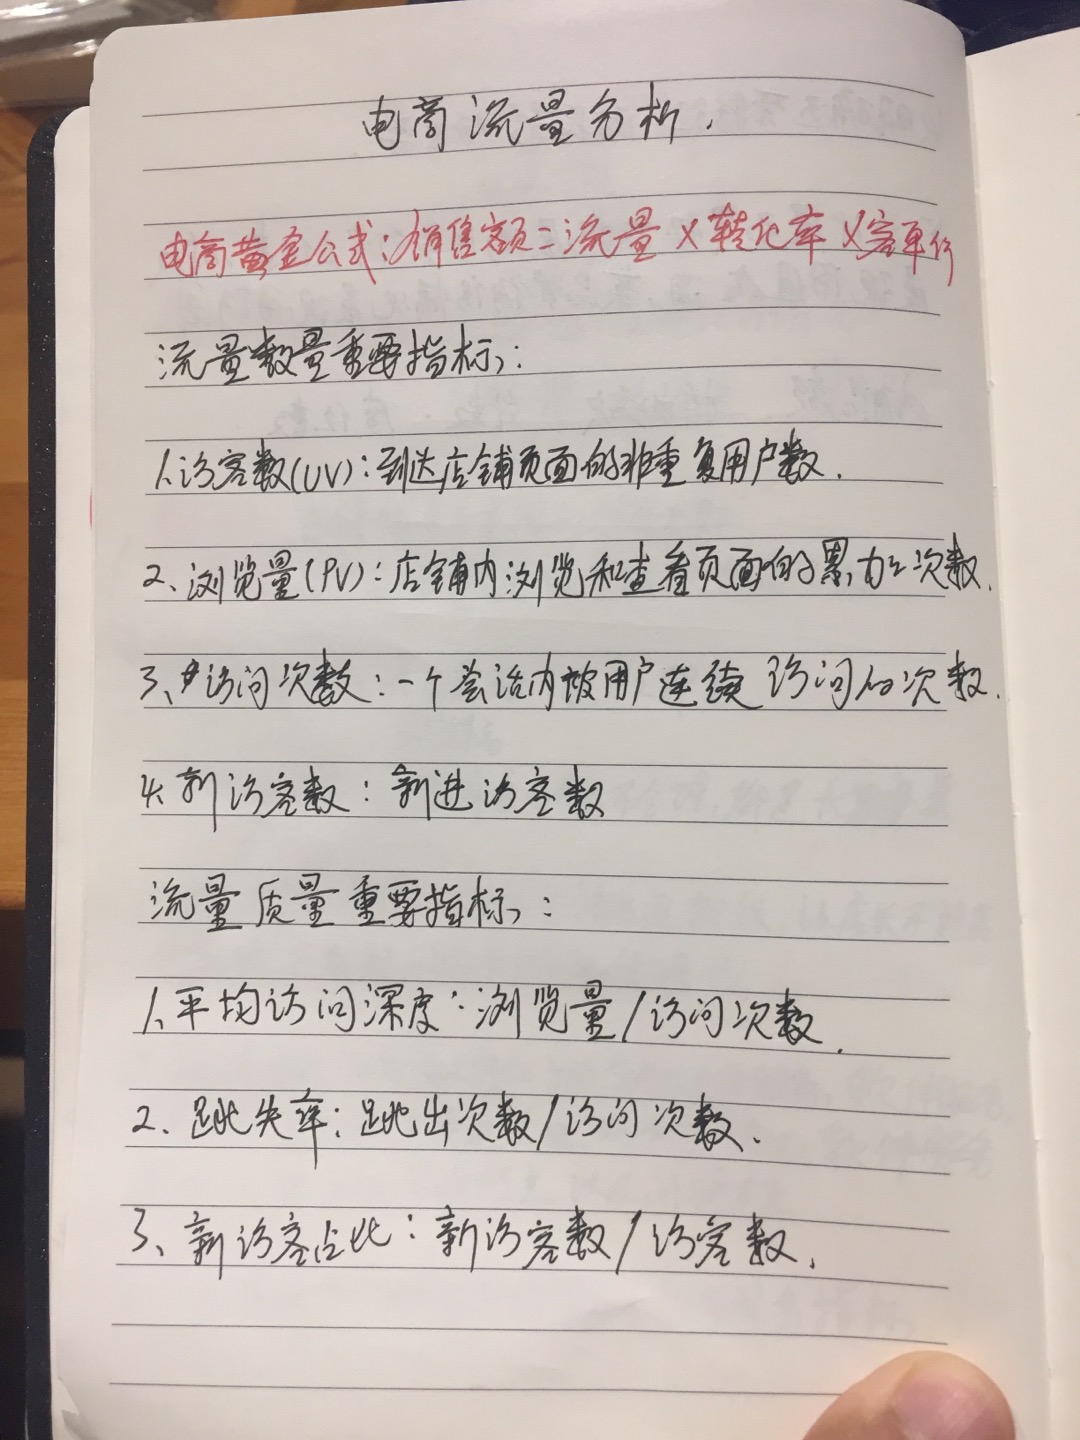 电商流量分析.
电商黄金公式:销售额=流量×转化率×客单价
流量数量重要指标:
1.访客数(UV):到达店铺页面的非重复用户数.
2、浏览量(PV):店铺内浏览和查看页面的累加次数.
3、访问次数:一个会话内被用户连续访问的次数.
4.新访客数:新进访客数
流量质量重要指标:
1.平均访问深度:浏览量/访问次数.
2、跳失率:跳出次数/访问次数.
3、新访客占比:新访客数/访客数.